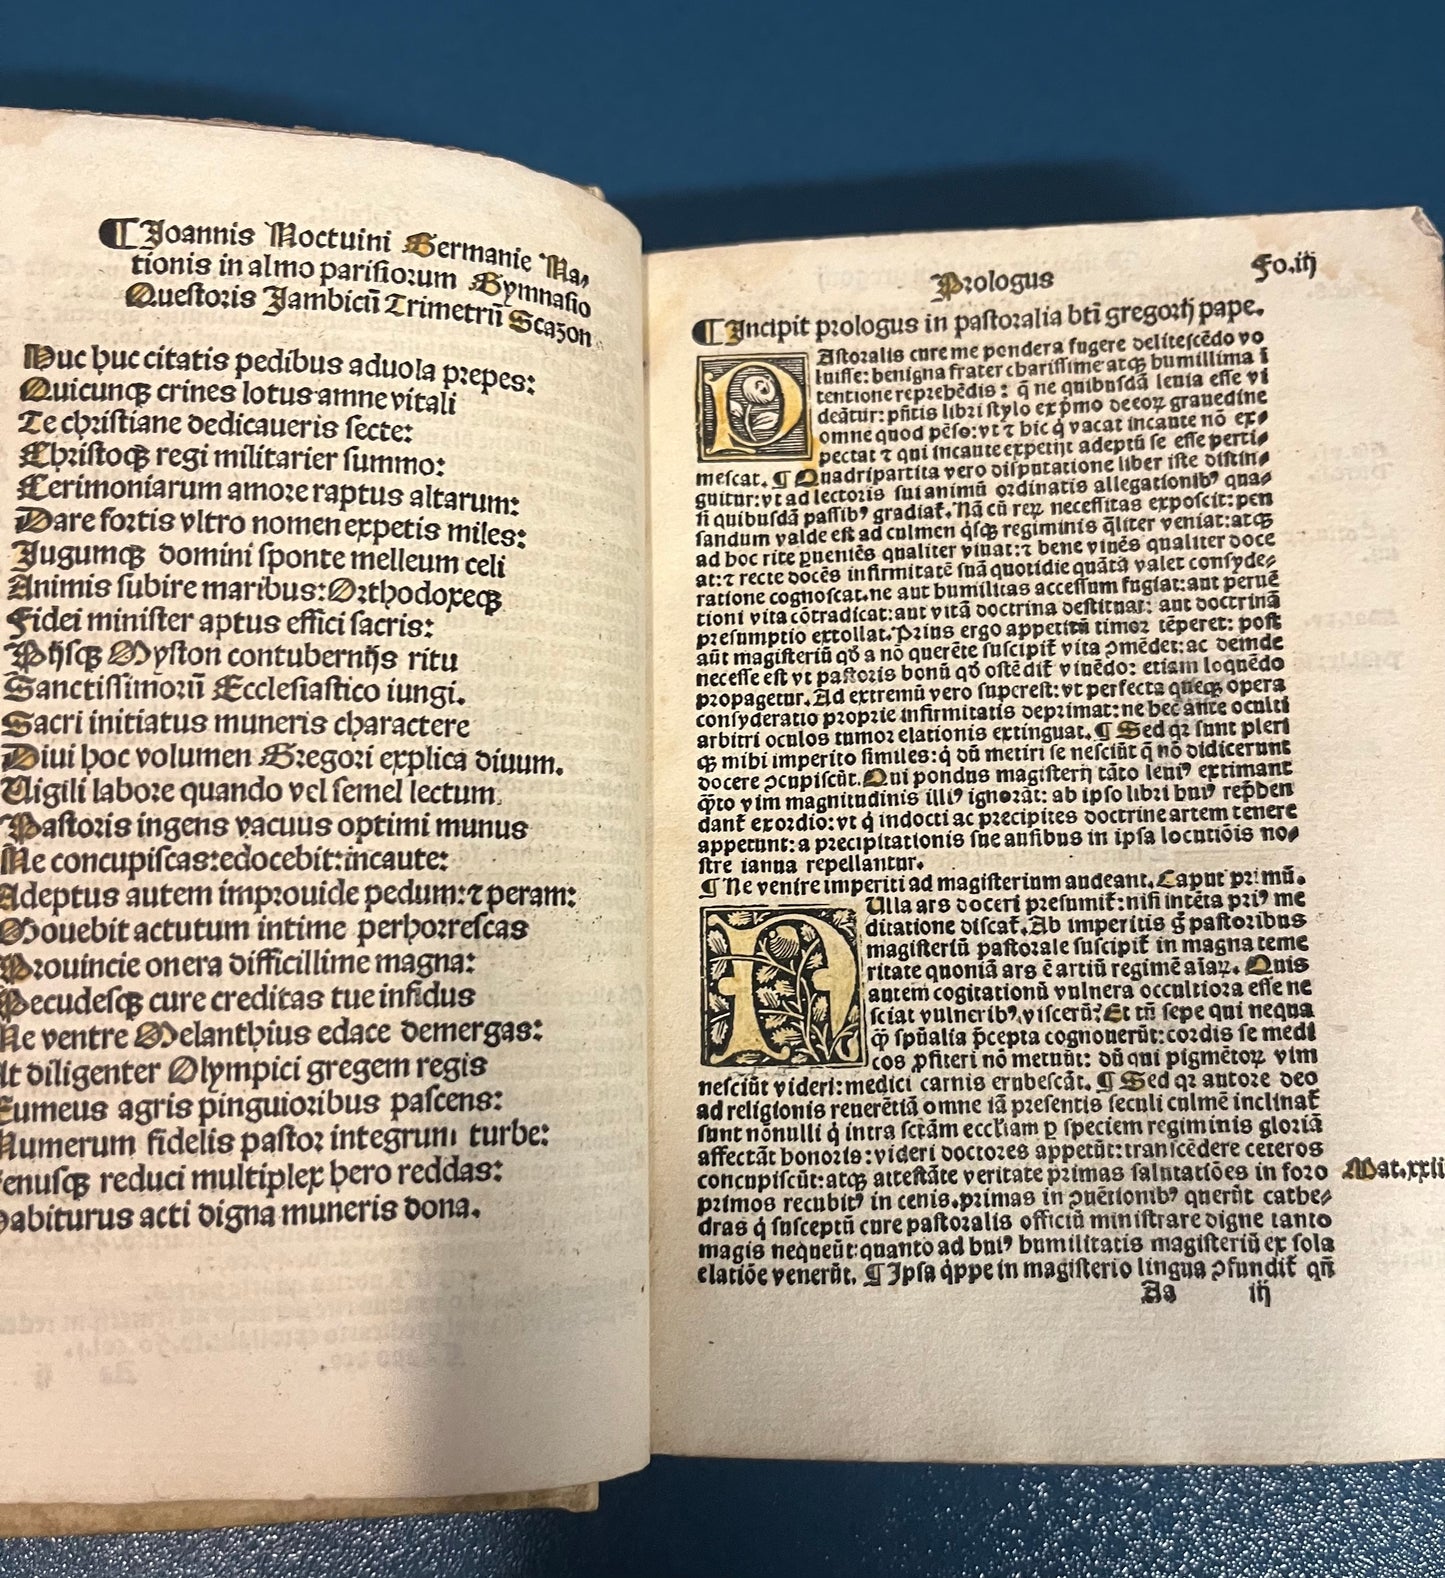 ¶ Joannis Noctuini Germanie Na⸗
tionis in almo parisiorum Gymnasio
Questoris Jambicū Trimetrū Scazon
Huc huc citatis pedibus aduola prepes:
Quicunqꝫ crines lotus amne vitali
Te christiane dedicaueris secte:
Christoqꝫ regi militarier summo:
Cerimoniarum amore raptus altarum:
Dare fortis vltro nomen expetis miles:
Jugumqꝫ domini sponte melleum celi
Animis subire maribus: Orthodoxeqꝫ
Fidei minister aptus effici sacris:
Pijsqꝫ Myston contubernijs ritu
Sanctissimorū Ecclesiastico iungi.
Sacri initiatus muneris charactere
Diui hoc volumen Gregori explica diuum.
Uigili labore quando vel semel lectum
Pastoris ingens vacuus optimi munus
Ne concupiscas: edocebit: incaute:
Adeptus autem improuide pedum: ⁊ peram:
Mouebit actutum intime perhorrescas
Prouincie onera difficillime magna:
Pecudesqꝫ cure creditas tue infidus
Ne ventre Melanthius edace demergas:
At diligenter Olympici gregem regis
Eumeus agris pinguioribus pascens:
Numerum fidelis pastor integrum turbe:
Fenusqꝫ reduci multiplex hero reddas:
Habiturus acti digna muneris dona.
Prologus Fo.iij
¶ Incipit prologus in pastoralia bti gregorij pape.
PAstoralis cure me pondera fugere delitescēdo vo
luisse: benigna frater charissime atqꝫ humillima ī
tentione reprehēdis: q̄ ne quibusdā leuia esse vi
deātur: pñtis libri stylo exp̄mo de eoꝝ grauedine
omne quod pēso: vt ⁊ hic q̇ vacat incaute nō ex⸗
pectat ⁊ qui incaute expetijt adeptū se esse perti⸗
mescat. ¶ Quadripartita vero disputatione liber iste distin⸗
guitur: vt ad lectoris sui animū ordinatis allegationibꝰ qua⸗
si quibusdā passibꝰ gradiat̄. Nā cū reꝝ necessitas exposcit: pen
sandum valde est ad culmen q̇sqꝫ regiminis q̄liter veniat: atqꝫ
ad hoc rite ꝑueniēs qualiter viuat: ⁊ bene viuēs qualiter doce
at: ⁊ recte docēs infirmitatē suā quotidie quāta valet consyde⸗
ratione cognoscat. ne aut humilitas accessum fugiat: aut peruē
tioni vita cōtradicat: aut vitā doctrina destituat: aut doctrinā
presumptio extollat. Prius ergo appetitū timor tēperet: post
aūt magisteriū qd̄ a nō querēte suscipit̄ vita ꝯmēdet: ac deinde
necesse est vt pastoris bonū qd̄ ostēdit̄ viuēdo: etiam loquēdo
propagetur. Ad extremū vero superest: vt perfecta queqꝫ opera
consyderatio proprie infirmitatis deprimat: ne hec ante oculti
arbitri oculos tumor elationis extinguat. ¶ Sed qꝛ sunt pleri
qꝫ mihi imperito similes: q̇ dū metiri se nesciūt q̄ nō didicerunt
docere ꝯcupiscūt. Qui pondus magisterij tāto leuiꝰ extimant
q̄to vim magnitudinis illiꝰ ignorāt: ab ipso libri huiꝰ rep̄hen
dant̄ exordio: vt q̇ indocti ac precipites doctrine artem tenere
appetunt: a precipitationis sue ausibus in ipsa locutiōis no⸗
stre ianua repellantur.
¶ Ne venire imperiti ad magisterium audeant. Caput primū.
NUlla ars doceri presumit̄: nisi intēta priꝰ me
ditatione discat̄. Ab imperitis g̊ pastoribus
magisteriū pastorale suscipit̄ in magna teme
ritate quoniā ars ē artiū regimē aīaꝝ. Quis
autem cogitationū vulnera occultiora esse ne
sciat vulneribꝰ viscerū? Et tn̄ sepe qui nequa
q̄ spūalia p̄cepta cognouerūt: cordis se medi
cos ꝓfiteri nō metuūt: dū qui pigmētoꝝ vim
nesciūt videri: medici carnis erubescāt. ¶ Sed qꝛ autore deo
ad religionis reuerētiā omne iā presentis seculi culmē inclinat̄
sunt nōnulli q̇ intra sctām eccliam ꝑ speciem regiminis gloriā
affectāt honoris: videri doctores appetūt: transcēdere ceteros
concupiscūt: atqꝫ attestāte veritate primas salutatiōes in foro Mat.xxii
primos recubitꝰ in cenis. primas in ꝯuētionibꝰ querūt cathe⸗
dras q̇ susceptū cure pastoralis officiū ministrare digne tanto
magis nequeūt: quanto ad huiꝰ humilitatis magisteriū ex sola
elatiōe venerūt. ¶ Ipsa q̇ppe in magisterio lingua ꝯfundit̄ qn̄
Aa iij